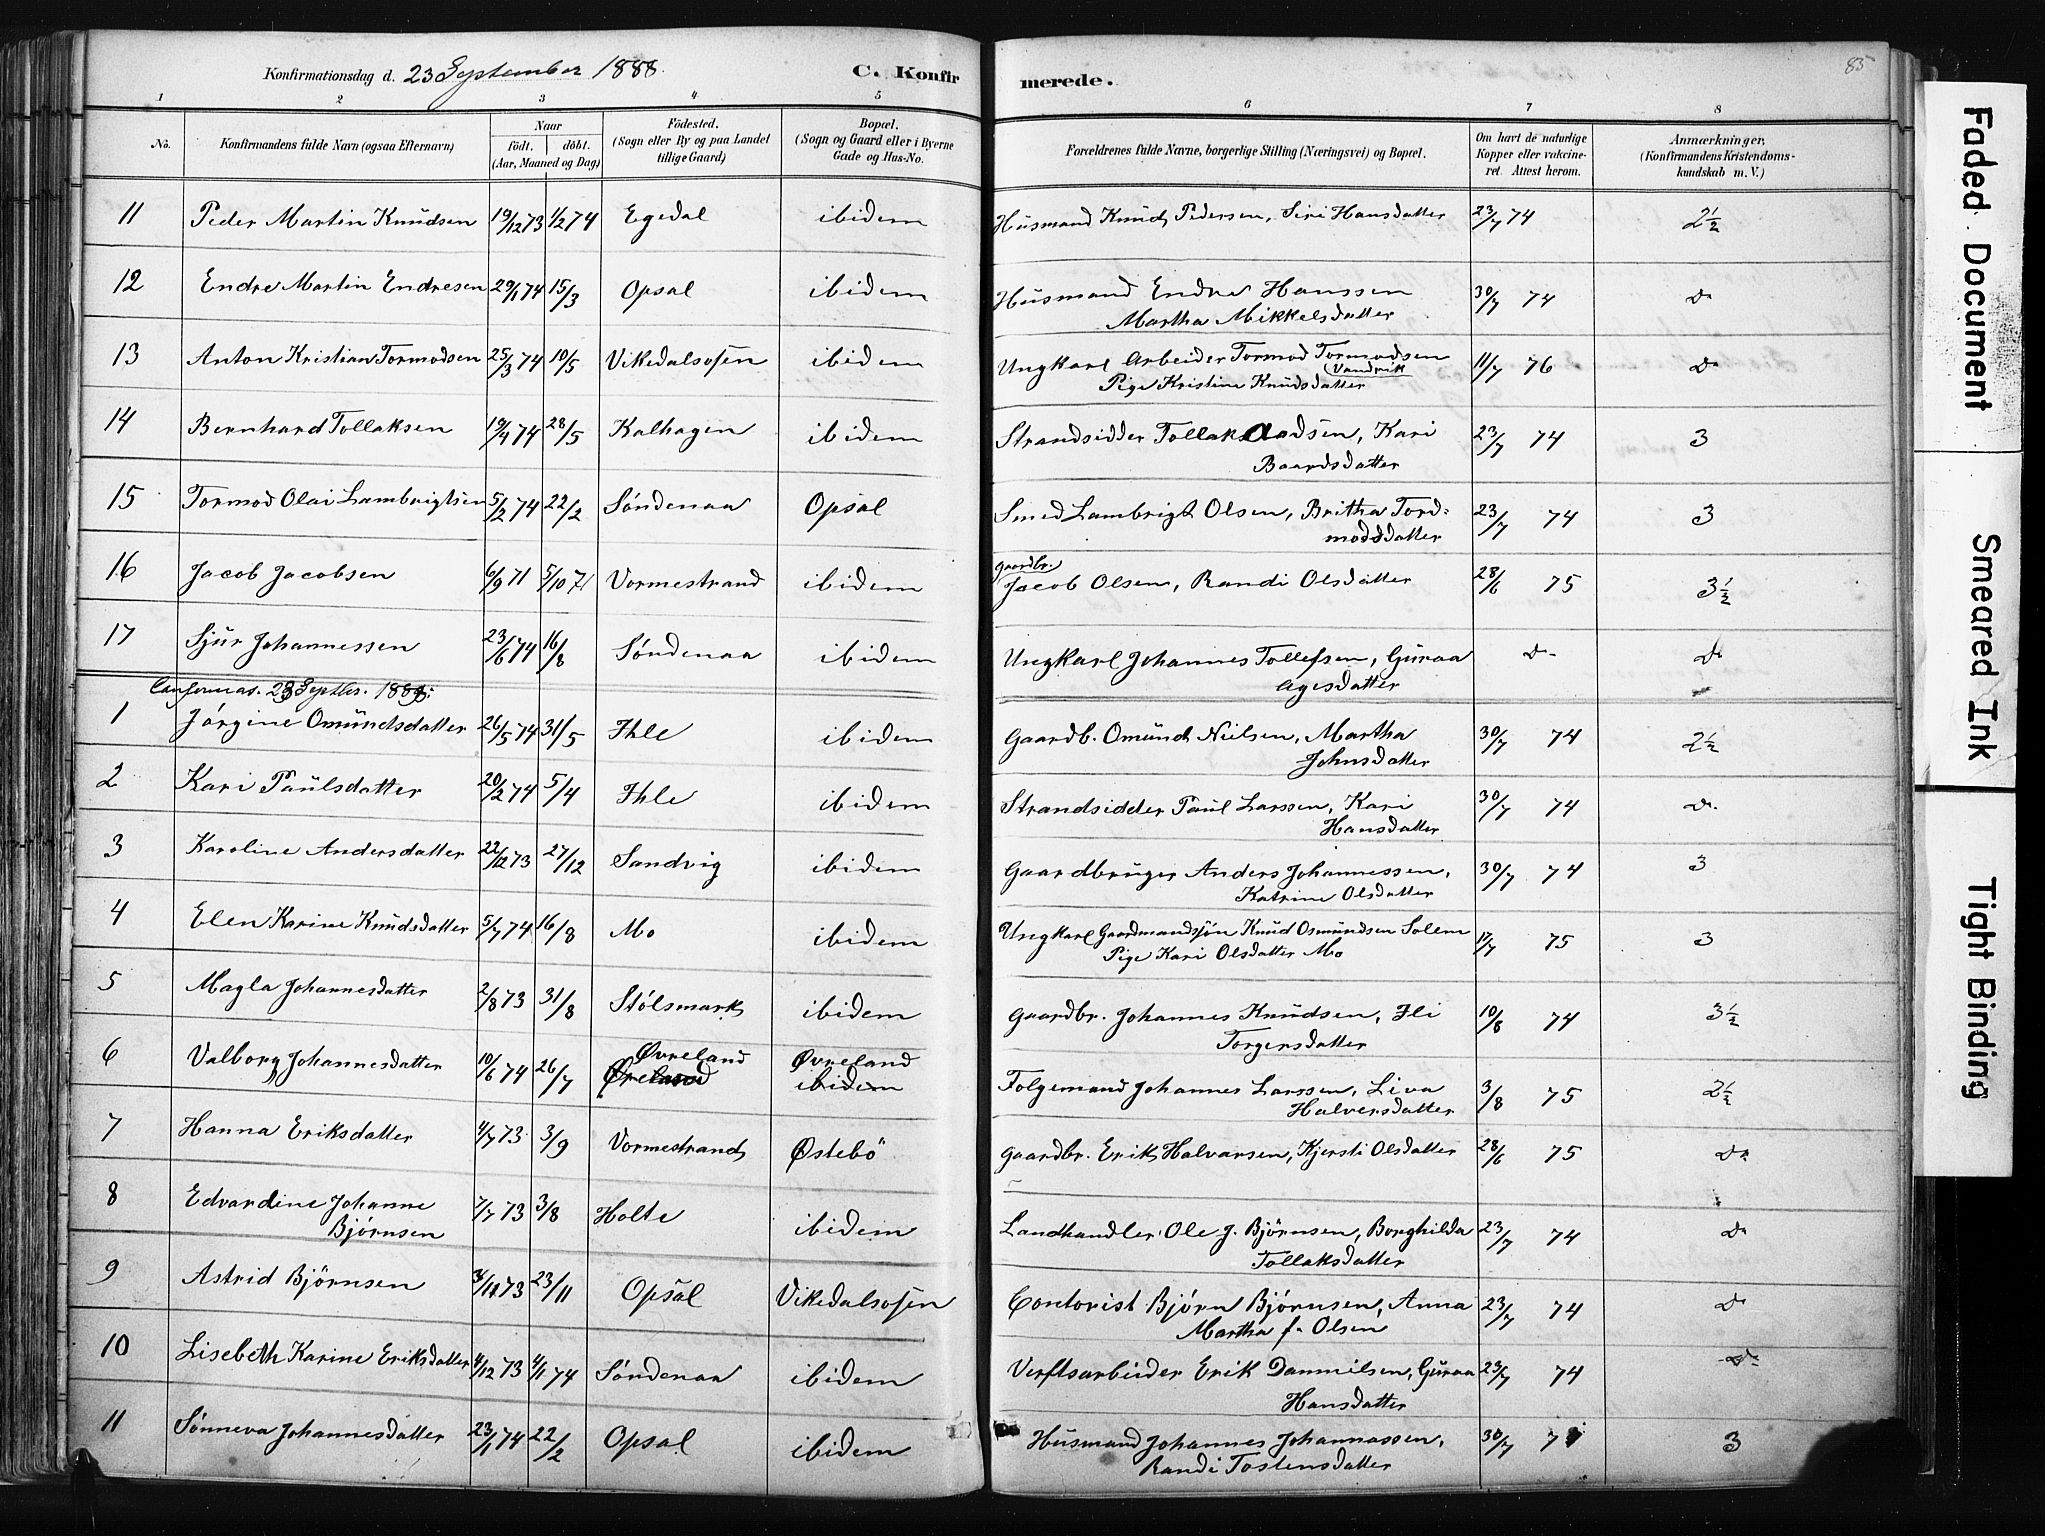 Konfirmationsdag d. 23 September 1888. C. Konfirmerede. 85
1 2 3 4 5 6 7 8
No. Konfirmandens fulde Navn (ogsaa Efternavn) Naar födt. döbt. (Aar, Maaned og Dag) Födested. (Sogn eller By og paa Landet tillige Gaard) Bopæl. (Sogn og Gaard eller i Byerne Gade og Hus-No. Forældrenes fulde Navne, borgerlige Stilling (Næringsvei) og Bopæl. Om havt de naturlige Kopper eller vakcineret. Attest herom. Anmærkninger, (Konfirmandens Kristendomskundskab m. V.)
11 Peder Martin Knudsen 19/12 73 1/2 74 Egedal ibidem Husmand Knud Pedersen, Siri Hansdatter 23/7 74 2½
12 Endre Martin Endresen 29/1 74 15/3 Opsal ibidem Husmand Endre Hanssen
Martha Mikkelsdatter 30/7 74 Do
13 Anton Kristian Tormodsen 25/3 74 10/5 Vikedalsosen ibidem Ungkarl Arbeider Tormod Tormodsen
Vandvik
Pige Kristine Knudsdatter 11/7 76 Do
14 Bernhard Tollaksen 19/4 74 28/5 Kalhagen ibidem Strandsidder Tollak Aadsen, Kari
Baardsdatter 23/7 74 3
15 Tormod Olai Lambrigtsen 5/2 74 22/2 Söndenaa Opsal Smed Lambrigt Olsen, Britha Tord-
modsdatter 23/7 74 3
16 Jacob Jacobsen 6/9 71 5/10 71 Vormestrand ibidem Gaardbr.
Jacob Olsen, Randi Olsdatter 28/6 75 3½
17 Sjur Johannessen 23/6 74 16/8 Söndenaa ibidem Ungkarl Johannes Tollefsen, Guraa
Agesdatter Do Do
23 Septbr. 1888.
1 Jörgine Omundsdatter 26/5 74 31/5 Ihle ibidem Gaardb. Omund Nielsen, Martha
Johnsdatter 30/7 74 2½
2 Kari Paulsdatter 20/2 74 5/4 Ihle ibidem Strandsidder Paul Larssen, Kari
Hansdatter 30/7 74 Do.
3 Karoline Andersdatter 22/12 73 27/12 Sandvig ibidem Gaardbruger Anders Johannessen,
Katrine Olsdatter 30/7 74 3
4 Elen Karine Knudsdatter 5/7 74 16/8 Mo ibidem Ungkarl Gaardmandssön Knud Osmundsen Solem
Pige Kari Olsdatter Mo 17/7 75 3
5 Magla Johannesdatter 2/8 73 31/8 Stölsmark ibidem Gaardbr. Johannes Knudsen, Ili
Torgersdatter 10/8 74 3½
6 Valborg Johannesdatter 10/6 74 26/7 Øvreland
Øreland Øvreland
ibidem Folgemand Johannes Larssen, Liva
Halversdatter 3/8 75 2½
7 Hanna Eriksdatter 4/7 73 3/9 Vormestrand Østebö Gaardbr. Erik Halvarsen, Kjersti Olsdatter 28/6 75 Do
8 Edvardine Johanne
Björnsen 7/7 73 3/8 Holte ibidem Landhandler Ole J. Björnsen, Borghilda
Tollaksdatter 23/7 74 Do
9 Astrid Björnsen 3/11 73 23/11 Opsal Vikedalsosen Contorist Björn Björnsen, Anna
Martha f. Olsen 23/7 74 Do
10 Lisebeth Karine Eriksdatter 4/12 73 4/1 74 Söndenaa ibidem Verftsarbeider Erik Dannilsen, Guraa
Hansdatter 23/7 74 Do
11 Sönneva Johannesdatter 23/1 74 22/2 Opsal ibidem Husmand Johannes Johannassen,
Randi Tostensdatter 30/7 3
Faded Document
Smeared Ink
Tight Binding